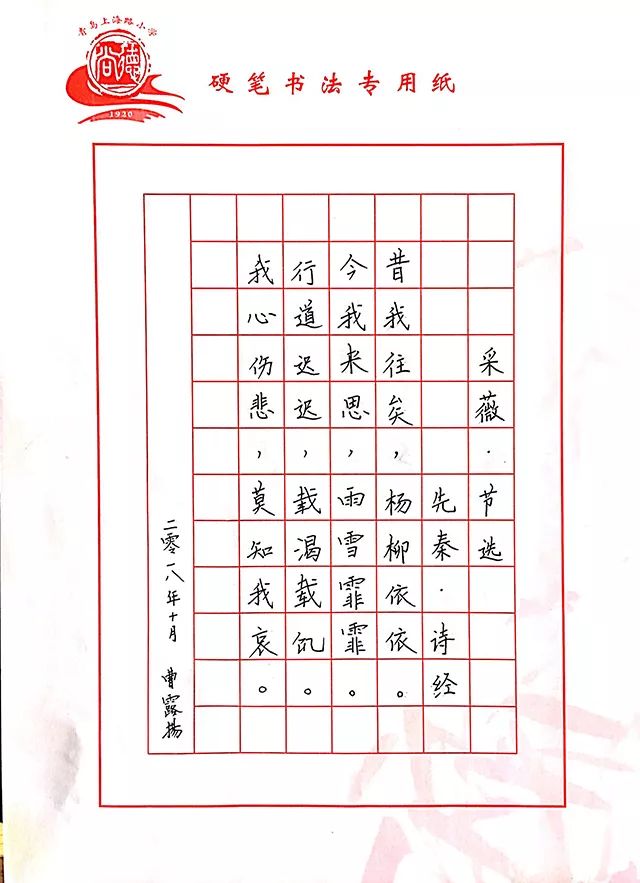 青岛上海路小学
尚德
1920
硬笔书法专用纸
采薇·节选
先秦·诗经
昔我往矣，杨柳依依。
今我来思，雨雪霏霏。
行道迟迟，载渴载饥。
我心伤悲，莫知我哀。
二零一八年十月 曹露揚